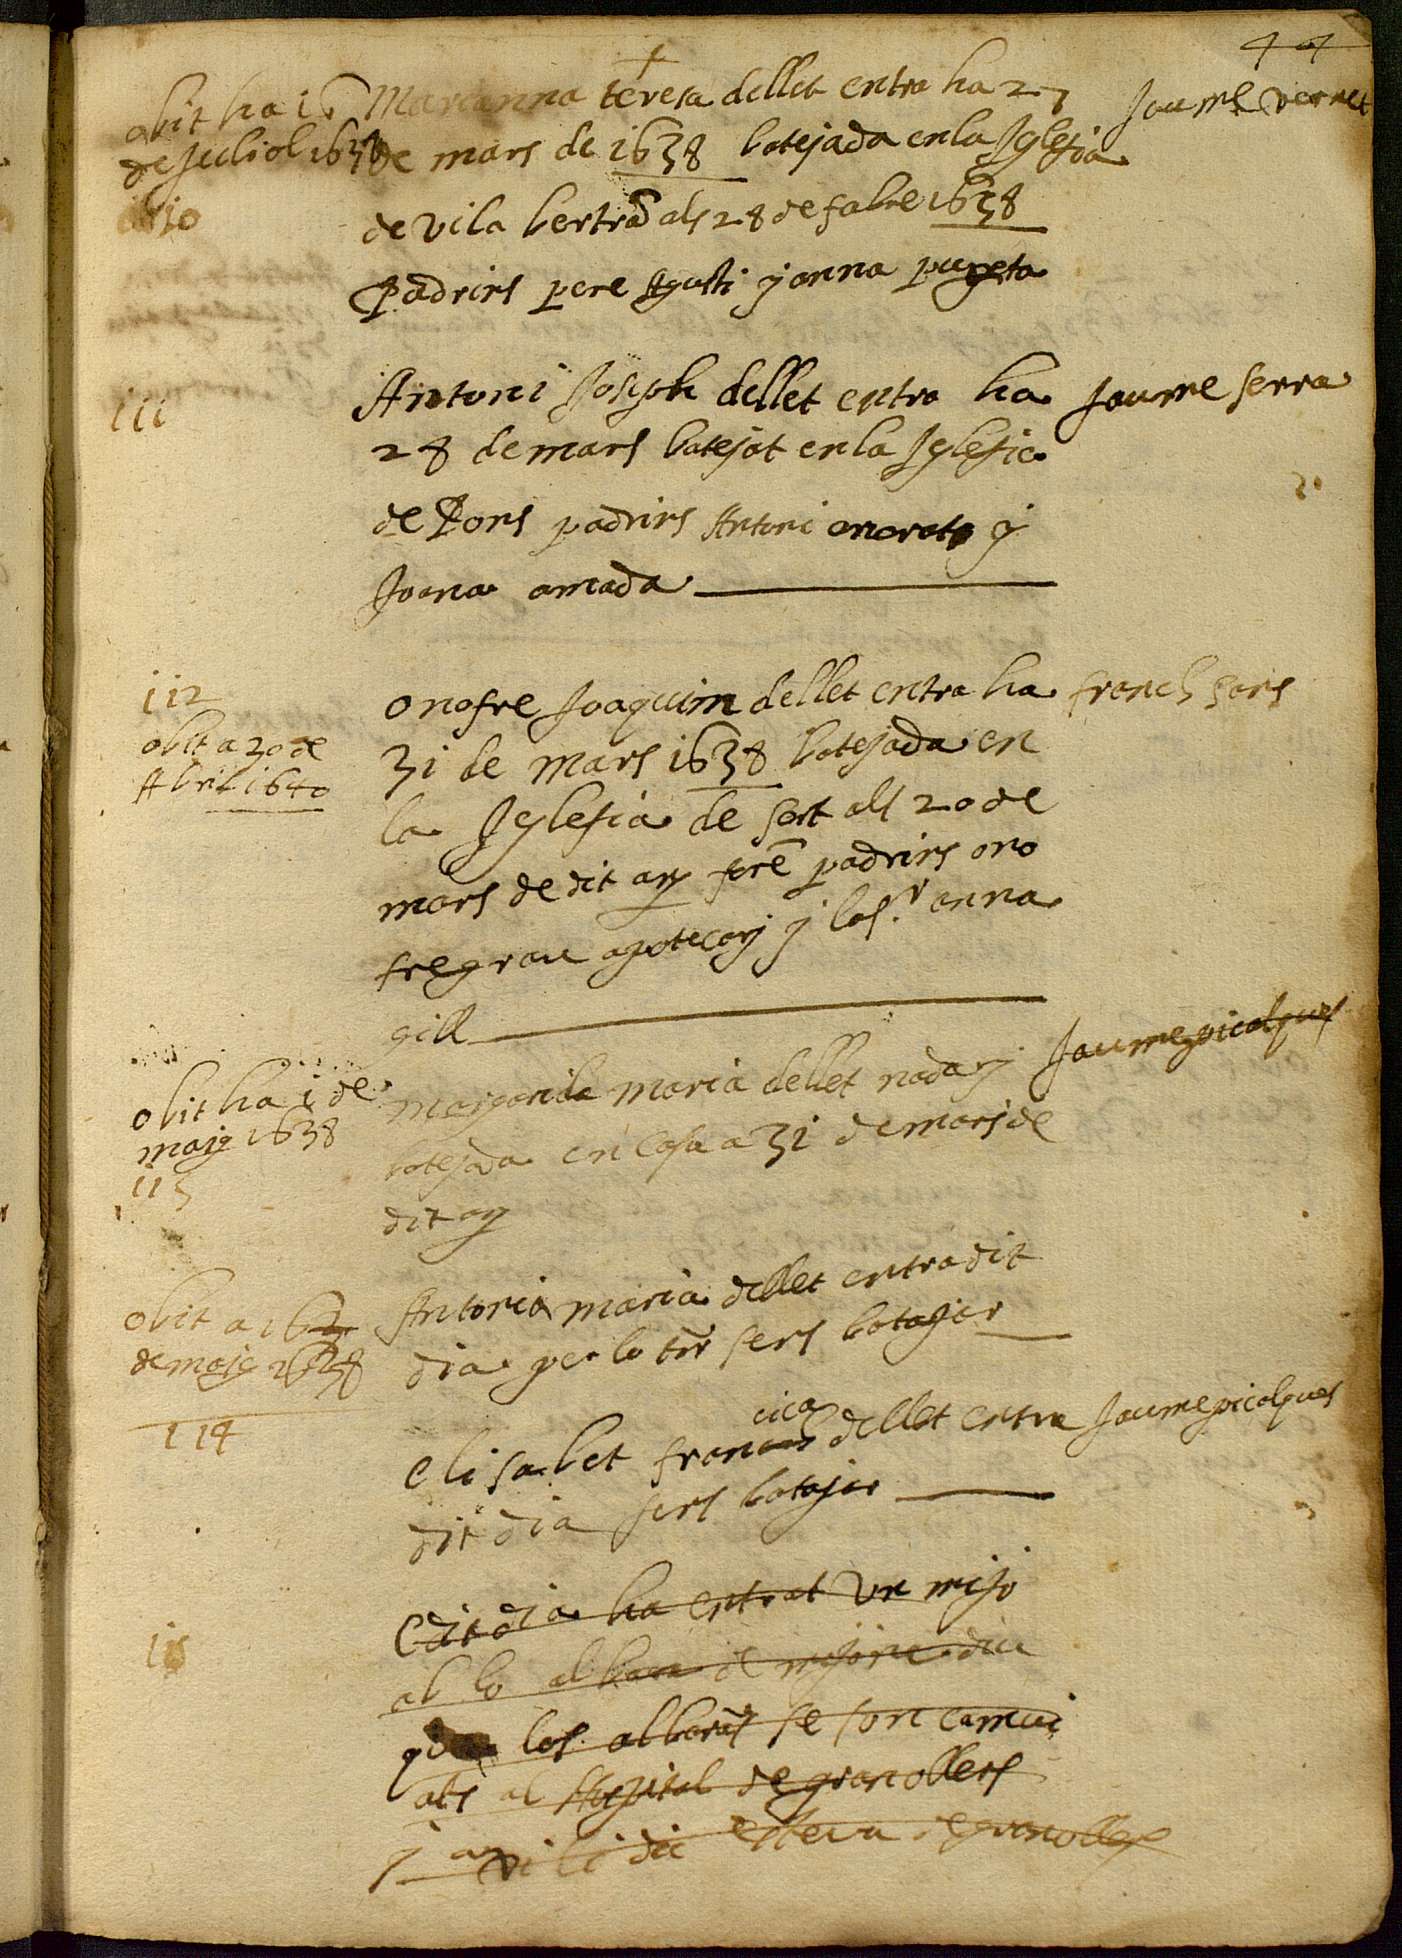 obit ha 18
de Juliol 1638
110
Marianna teresa dellet entra ha 27
de mars de 1638 batejada en la Iglesia
de vila bertrã als 28 de fabre 1638
Padrins pere Agusti y anna pugeta
Jaume vernet
111
Antoni Joseph dellet entra ha
28 de mars batejat en la Iglesia
de Pons padrins Antoni y
Joana amada
Jaume serra
112
obit a 30 de
Abril 1640
onofre Joaquim dellet entra ha
31 de mars 1638 batejada en
la Iglesia de sort als 20 de
mars de dit any forẽ padrins ono
fre grau apotecari y la s.ra anna
gill
franch sans
obit ha 1 de
maig 1638
113
Margarida maria dellet nada y
batejada en casa a 31 de mars de
dit any
Jaume picalques
obit a 16
de maig 1638
114
Antonia maria dellet entra dit
dia per lo sens batajar
elisabet francisca dellet entra
dit dia sens batajar
Jaume picalques
115
E dit dia ha entrat un mijo
ab lo albara de
que los albarãs se son camui
ats al Hospital de granollers
y de granollers